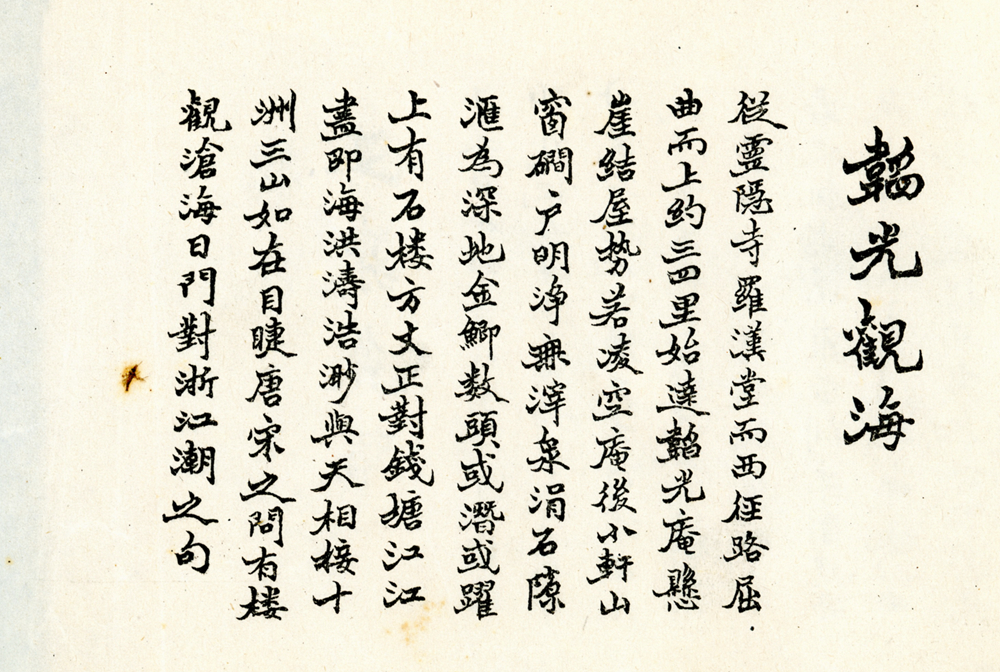 韜光觀海
從靈隱寺羅漢堂而西徑路屈
曲而上約三四里始達韜光庵懸
崖結屋勢若凌空庵後小軒山
窗磵户明淨無滓泉涓石隙
滙為深池金鯽数頭或潛或躍
上有石楼方丈正對錢塘江江
盡即海洪濤浩渺與天相接十
洲三山如在目睫唐宋之問有楼
觀滄海日門對浙江潮之句